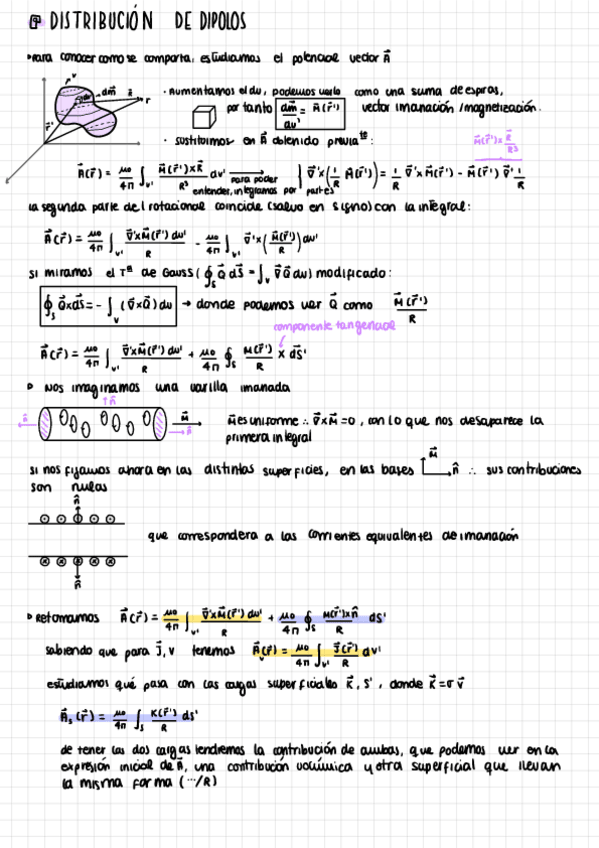 DISTRIBUCIÓN DE DIPOLOS
Para conocer como se comporta, estudiamos el potencial vector A⃗
· Aumentamos el dv, podemos verlo como una suma de espiras,
por tanto dm⃗/dv' = M⃗(r⃗') vector imanación/magnetización.
· sustituimos en A⃗ obtenido previa te:
M⃗(r⃗')x R⃗/R³
A⃗(r⃗) = μ₀/4π ∫v' M⃗(r⃗')xR⃗/R³ dv' → para poder entender, integramos por partes } ∇⃗'x(1/R M⃗(r⃗')) = 1/R ∇⃗'xM⃗(r⃗') - M⃗(r⃗') ∇⃗' 1/R
la segunda parte del rotacional coincide (salvo en signo) con la integral:
A⃗(r⃗) = μ₀/4π ∫v' ∇⃗'xM⃗(r⃗')dv'/R - μ₀/4π ∫v' ∇⃗'x(M⃗(r⃗')/R)dv'
si miramos el Tª de Gauss (∮s Q⃗ dS⃗ = ∫v ∇⃗Q⃗ dv) modificado:
∮s Q⃗xdS⃗ = - ∫v (∇⃗xQ⃗)dv → donde podemos ver Q⃗ como M⃗(r⃗')/R
componente tangencial
A⃗(r⃗) = μ₀/4π ∫v' ∇⃗'xM⃗(r⃗')dv'/R + μ₀/4π ∮s M(r⃗')/R x dS⃗'
Nos imaginamos una varilla imanada
n̂
n̂ M⃗ M⃗ es uniforme ∴ ∇⃗xM⃗=0, con lo que nos desaparece la
n̂ primera integral
si nos fijamos ahora en las distintas superficies, en las bases M⃗ n̂ ∴ sus contribuciones
son nulas
n̂
que correspondera a las corrientes equivalentes de imanación
n̂
Retomamos A⃗(r⃗) = μ₀/4π ∫v' ∇⃗'xM⃗(r⃗')dv'/R + μ₀/4π ∮s M(r⃗')xn̂/R ds'
sabiendo que para J⃗, V tenemos A⃗v(r⃗) = μ₀/4π ∫v' J⃗(r⃗')/R dv'
estudiamos qué pasa con las cargas superficiales K⃗, S', donde K⃗=σv⃗
A⃗s(r⃗) = μ₀/4π ∫s K(r⃗')/R ds'
de tener las dos cargas tendremos la contribución de ambas, que podemos ver en la
expresión inicial de A⃗, una contribución volúmica y otra superficial que llevan
la misma forma (···/R)